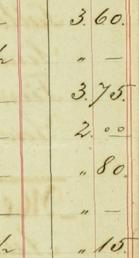 3. 60.
½ " —
3. 75.
2. 00
" 80.
" —
½ " 15.